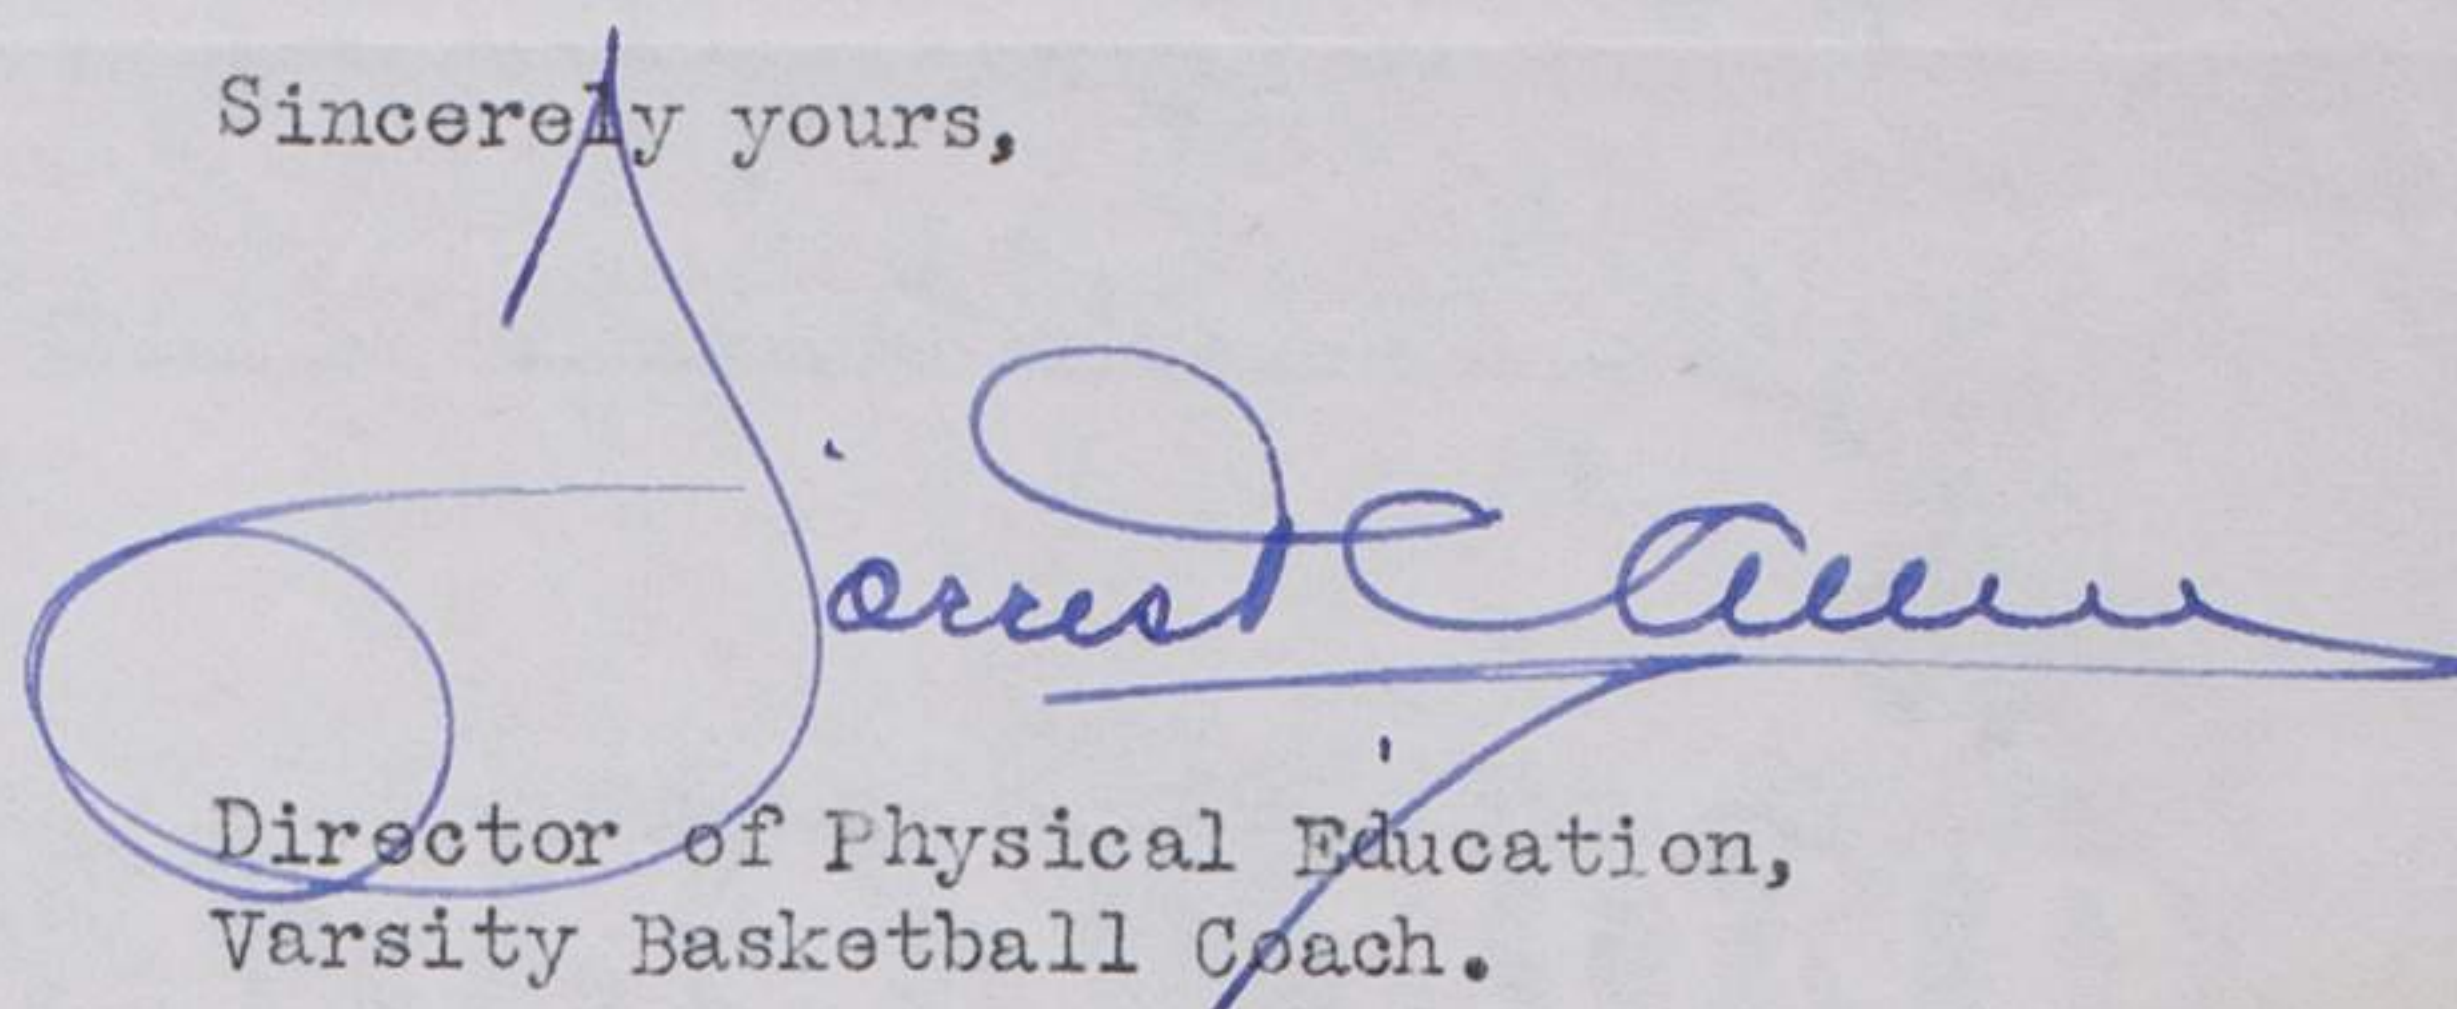 Sincerely yours,
Forrest C Allen
Director of Physical Education,
Varsity Basketball Coach.